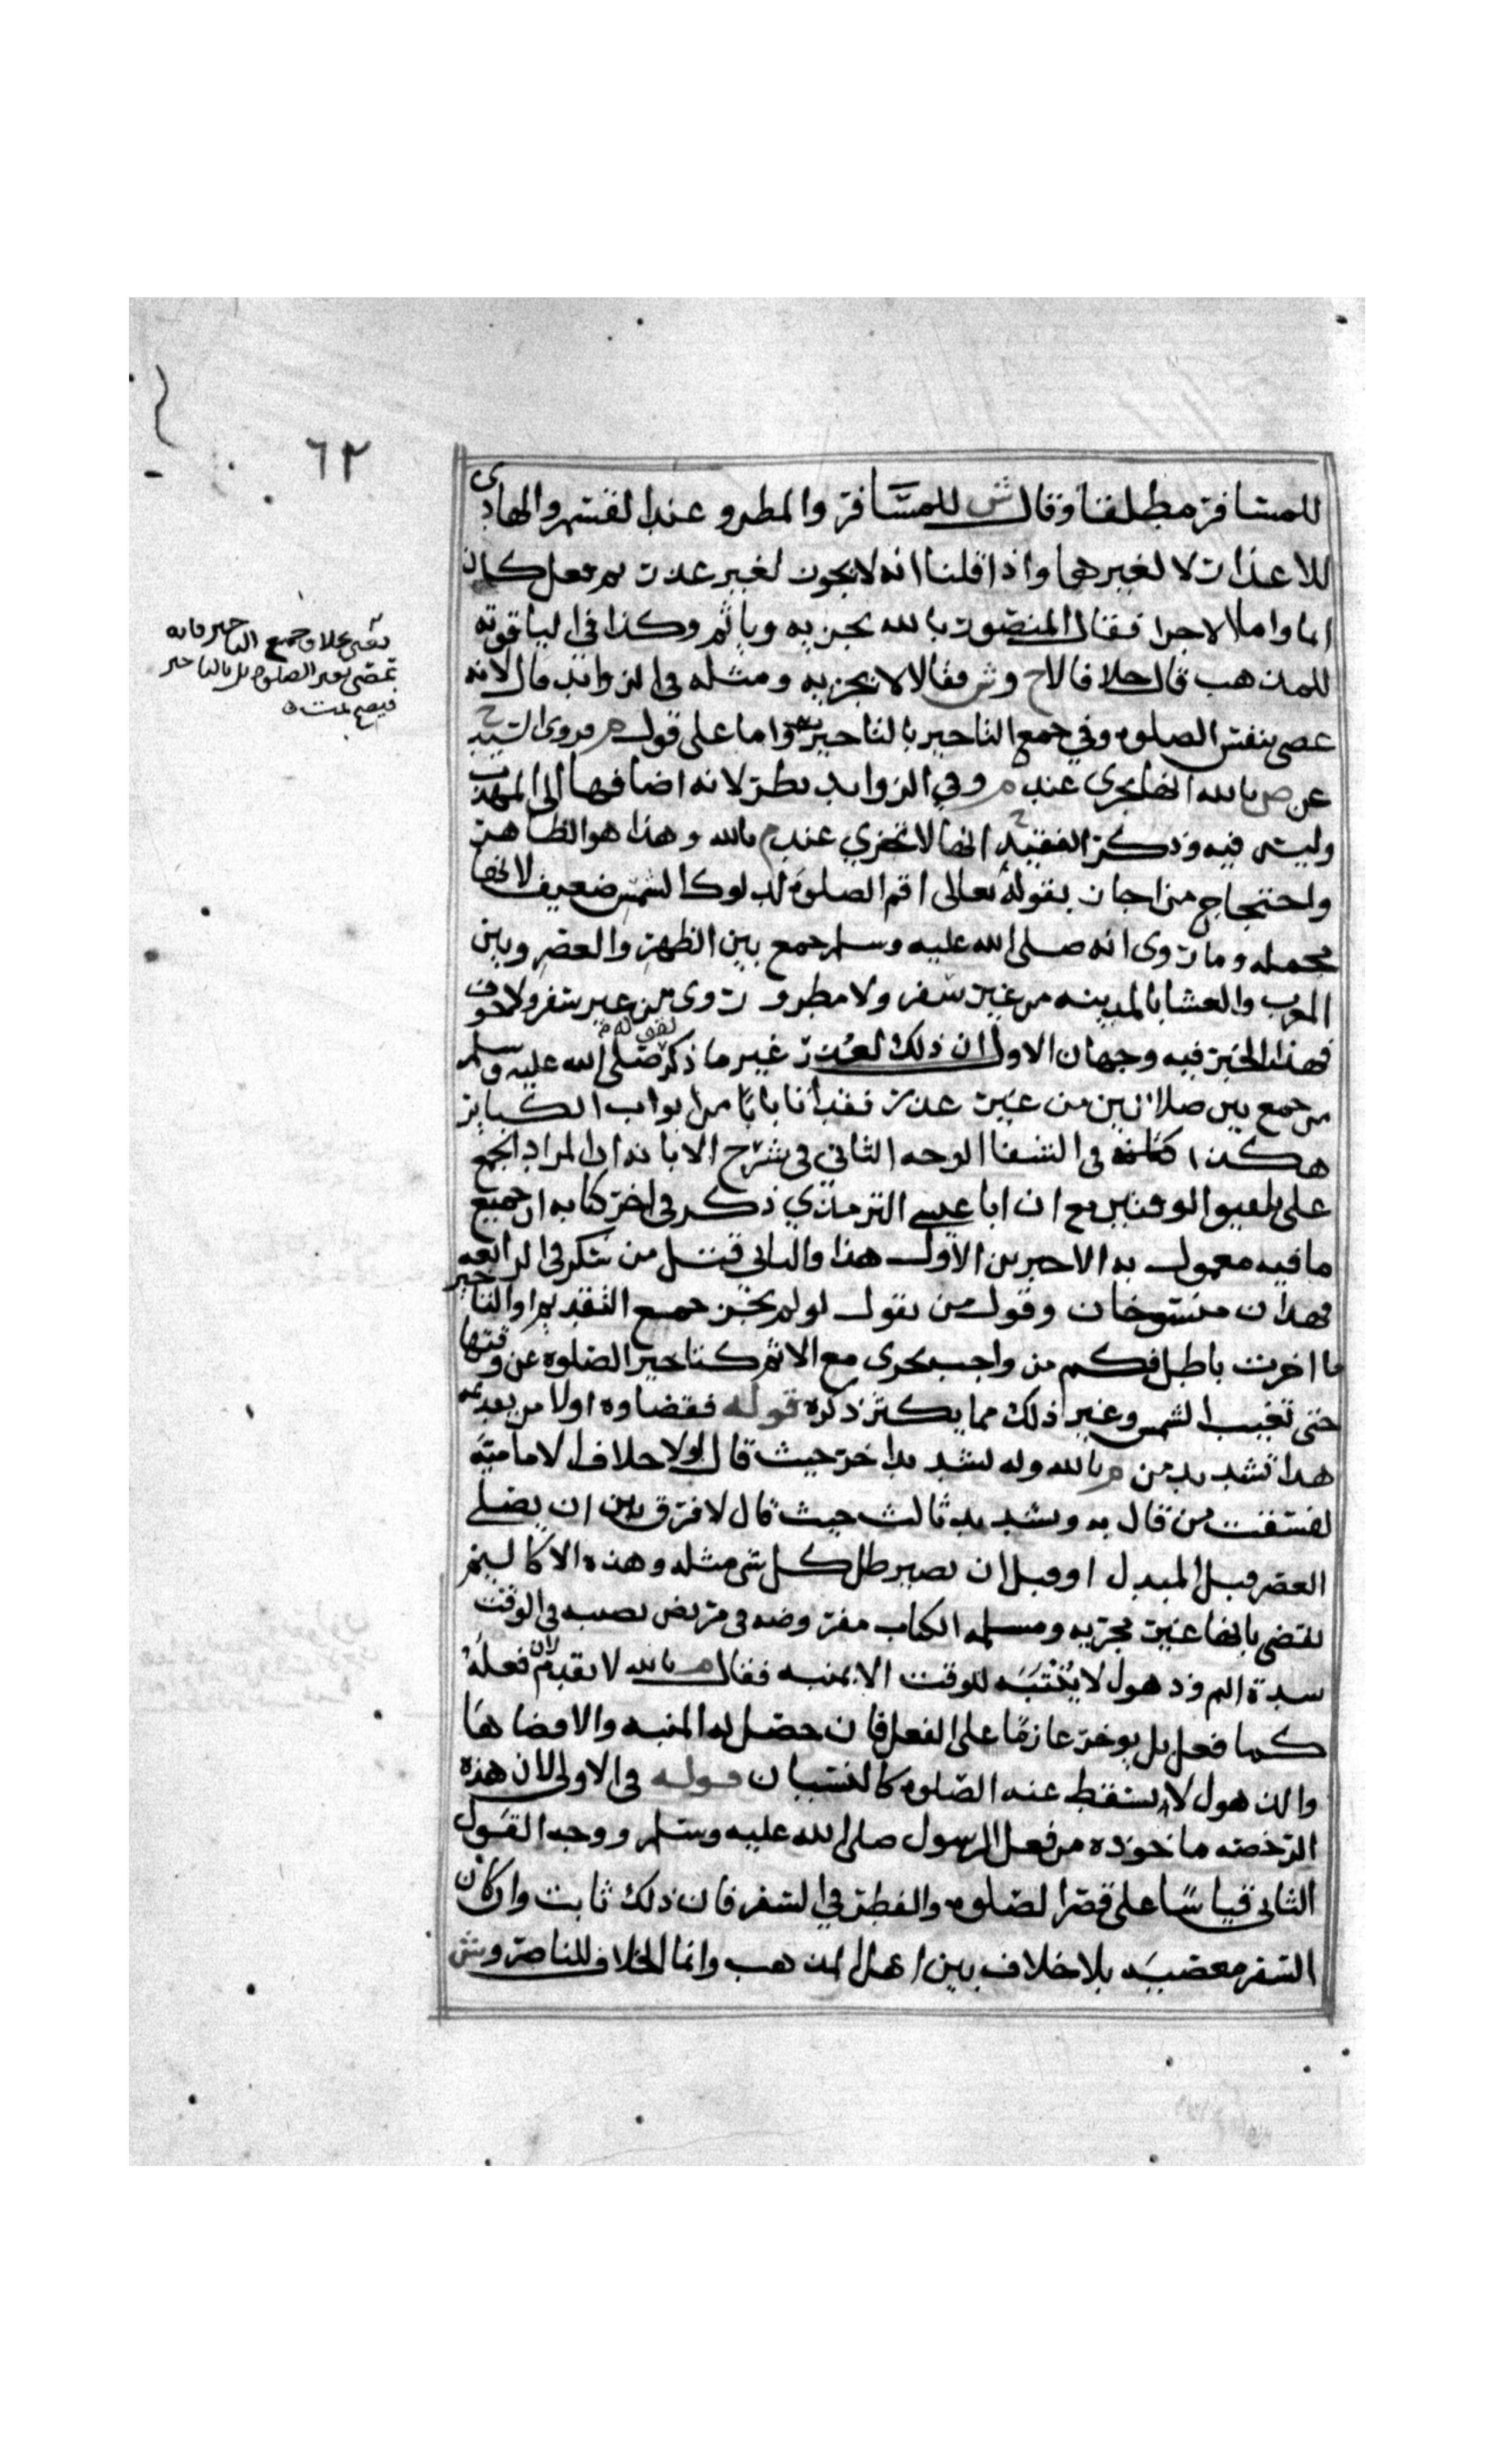 ٦٢
للمسافر مطلقا وقال ش للمسافر والمطر وعند القسم والهادي
للاعذار لا لغيرهما واذا قلنا انه لا يجوز لغير عذر ثم فعل كان
اثما واما الاجزا فقال المنصور بالله يجزيه وياثم وكذا في الياقوته
للمذهب قال خلافا لاح وش فقالا لا يجزيه ومثله في الزوايد قال لانه
عصى بنفس الصلوه وفي جمع التاخير بالتاخير واما على قول م فروى السيد ح
عن ص بالله انها تجزي عند م وفي الزوايد نظر لانه اضافها الى المهذب
وليس فيه وذكر الفقيه ح انها لا تجزي عند م بالله وهذا هو الظاهر
واحتجاج من اجاز بقوله تعالى اقم الصلوة لدلوك الشمس ضعيف لانها
مجمله وما روى انه صلى الله عليه وسلم جمع بين الظهر والعصر وبين
المغرب والعشا بالمدينه من غير سفر ولا مطر وروى من غير سفر ولا خوف
فهذا الخبر فيه وجهان الاول ان ذلك لعذر غير ما ذكر لقوله صلى الله عليه وسلم
من جمع بين صلاتين من غير عذر فقد اتا بابا من ابواب الكباير
هكذا في الشفا الوجه الثاني في شرح الابانه ان المراد الجمع
على الوقتين مع ان ابا عيسى الترمذي ذكر في اخر كتابه ان جميع
ما فيه معمول به الا خبرين الاول هذا والثاني قتل من سكر في الرابعه
فهذان منسوخان وقول من يقول لو لم يجز جمع التقديم او التاخير
ما اجزت باطل فكم من واجب يجزى مع الاثم كتاخير الصلوه عن وقتها
حتى تغيب الشمس وغير ذلك مما يكثر ذكره قوله فقضاوه اولا من بعد
هذا تشديد من م بالله وله تشديد اخر حيث قال لولا خلاف الاماميه
لفسقت من قال به وتشديد ثالث حيث قال لا فرق بين ان يصلي
العصر قبل او قبل ان يصير ظل كل شي مثله وهذه
تقضى بانها غير مجزيه ومسلمه الكتاب مفروضه في مريض يصيبه في الوقت
الم وذهول لا يثبته للوقت الا بمنبه فقال م بالله لا يقدم لان فعله
كما فعل بل يوخر عازما على الفعل فان حصل له المنبه والا قضاها
والذهول لا يسقط عنه الصلوه كالنسيان قوله في الاولى لان هذه
الرخصه ماخوذه من فعل الرسول صلى الله عليه وسلم ووجه القول
الثاني قياسا على قصر الصلوه والفطر في السفر فان ذلك ثابت وان كان
السفر معصيه بلا خلاف بين اهل المذهب وانما الخلاف للناصر وش
يعني بخلاف جمع التاخير فانه
لم يعص بنفس الصلوه بل بالتاخير
فيصح